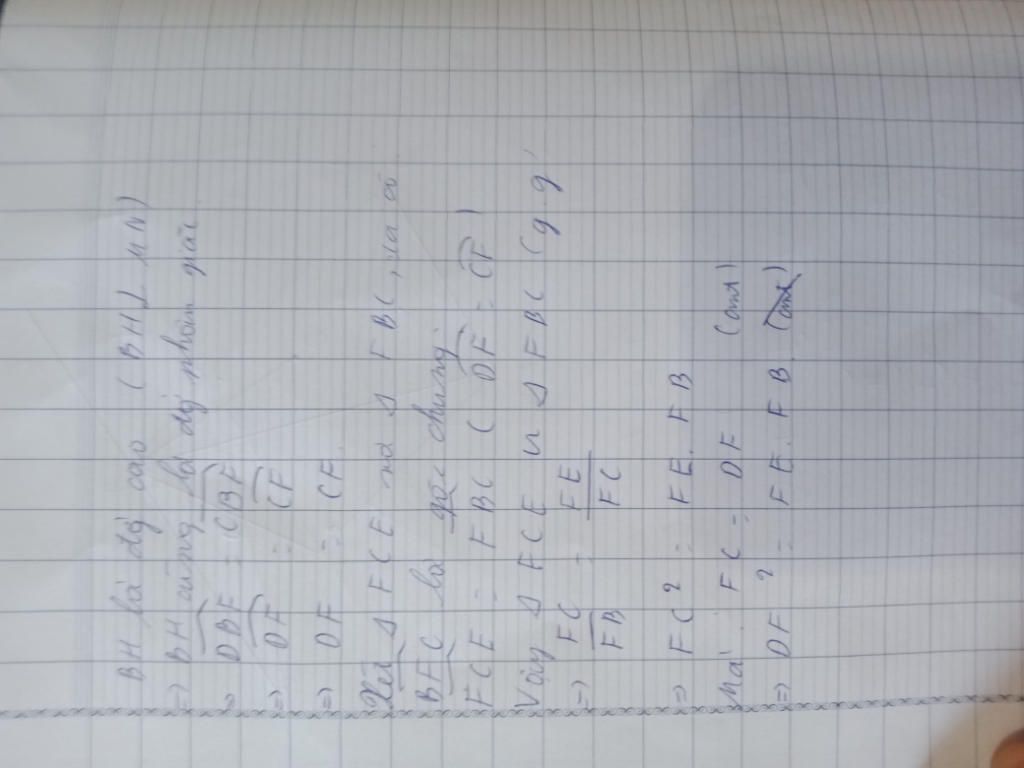 BH là đg cao ( BH ⊥ MN )
=> BH cũng là đg phân giác
=> DBF = CBF
=> DF = CF
=> DF = CF.
Xét Δ FCE và Δ FBC, ta có
BFC là góc chung
FCE = FBC ( DF = CF )
Vậy Δ FCE ∽ Δ FBC ( g.g )
=> FC/FB = FE/FC
=> FC² = FE. FB
Mà : FC = DF (cmt)
=> DF² = FE. FB (cmt)